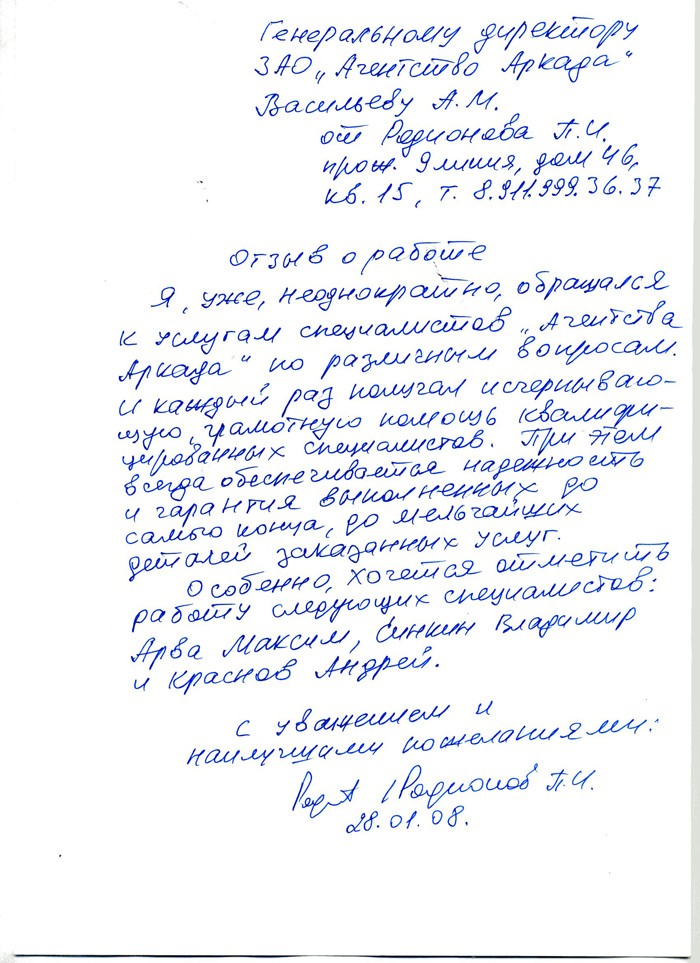 Генеральному директору
ЗАО „Агентство Аркада“
Васильеву А.М.
от Родионова П.И.
прож. 9 линия, дом 46,
кв. 15, т. 8.911.999.36.37
Отзыв о работе
Я, уже, неоднократно, обращался
к услугам специалистов „Агентства
Аркада“ по различным вопросам.
И каждый раз получал исчерпываю-
щую, грамотную помощь квалифи-
цированных специалистов. При этом
всегда обеспечивается надежность
и гарантия выполненных до
самого конца, до мельчайших
деталей заказанных услуг.
Особенно, хочется отметить
работу следующих специалистов:
Арва Максим, Синкин Владимир
и Краснов Андрей.
с уважением и
наилучшими пожеланиями:
/Родионов П.И.
28.01.08.